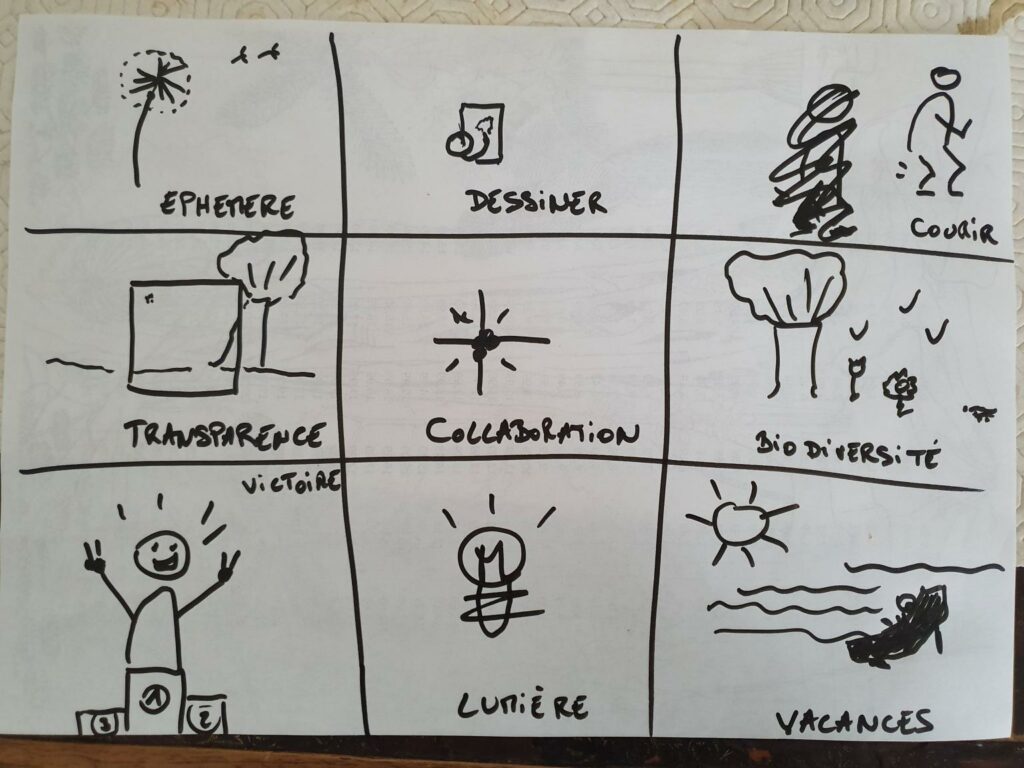 EPHEMERE
DESSINER
COURIR
TRANSPARENCE
COLLABORATION
BIODIVERSITÉ
VICTOIRE
1
3
2
LUMIÈRE
VACANCES